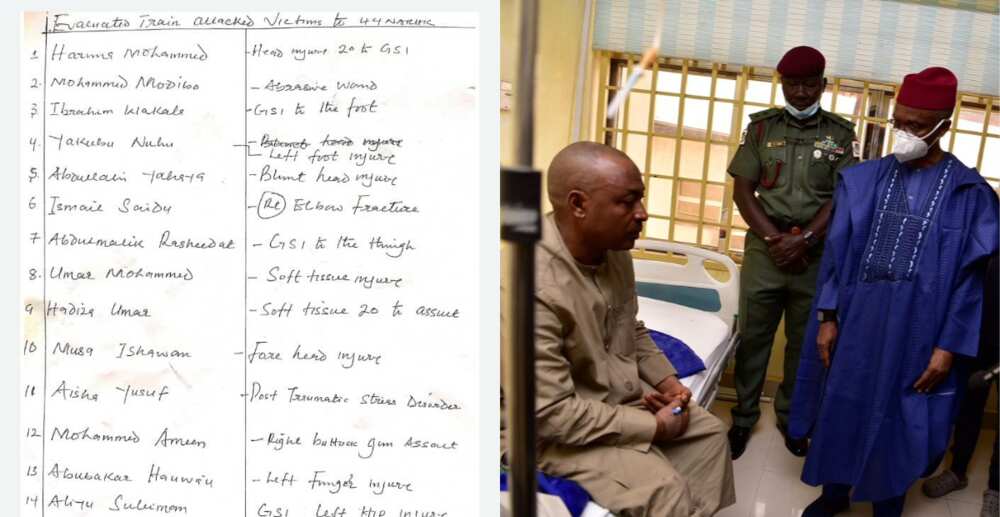 Evacuated Train attacked Victims to 44NARHK
1 Haruna Mohammed - Head injure 20 to GSI
2. Mohammed Modibo - Abrasive wond
3 Ibrahim Wakala - GSI to the foot
4. Yakubu Nuhu - Blunt head injure
- Left foot injure
5. Abdullahi Yahaya - Blunt head injure
6 Ismail Saidu - Rt Elbow Fracture
7 Abdulmalik Rasheedat - GSI to the thigh
8. Umar Mohammed - Soft tissue injure
9 Hadiza Umar - Soft tissue 20 to assuet
10 Musa Ishawan - Fore head injure
11 Aisha Yusuf - Post Traumatic Stress Disorder
12 Mohammed Ameen - Right buttock gun Assaut
13 Abubakar - Left injure
14 Aliyu Suleiman GSI Left Hip injure